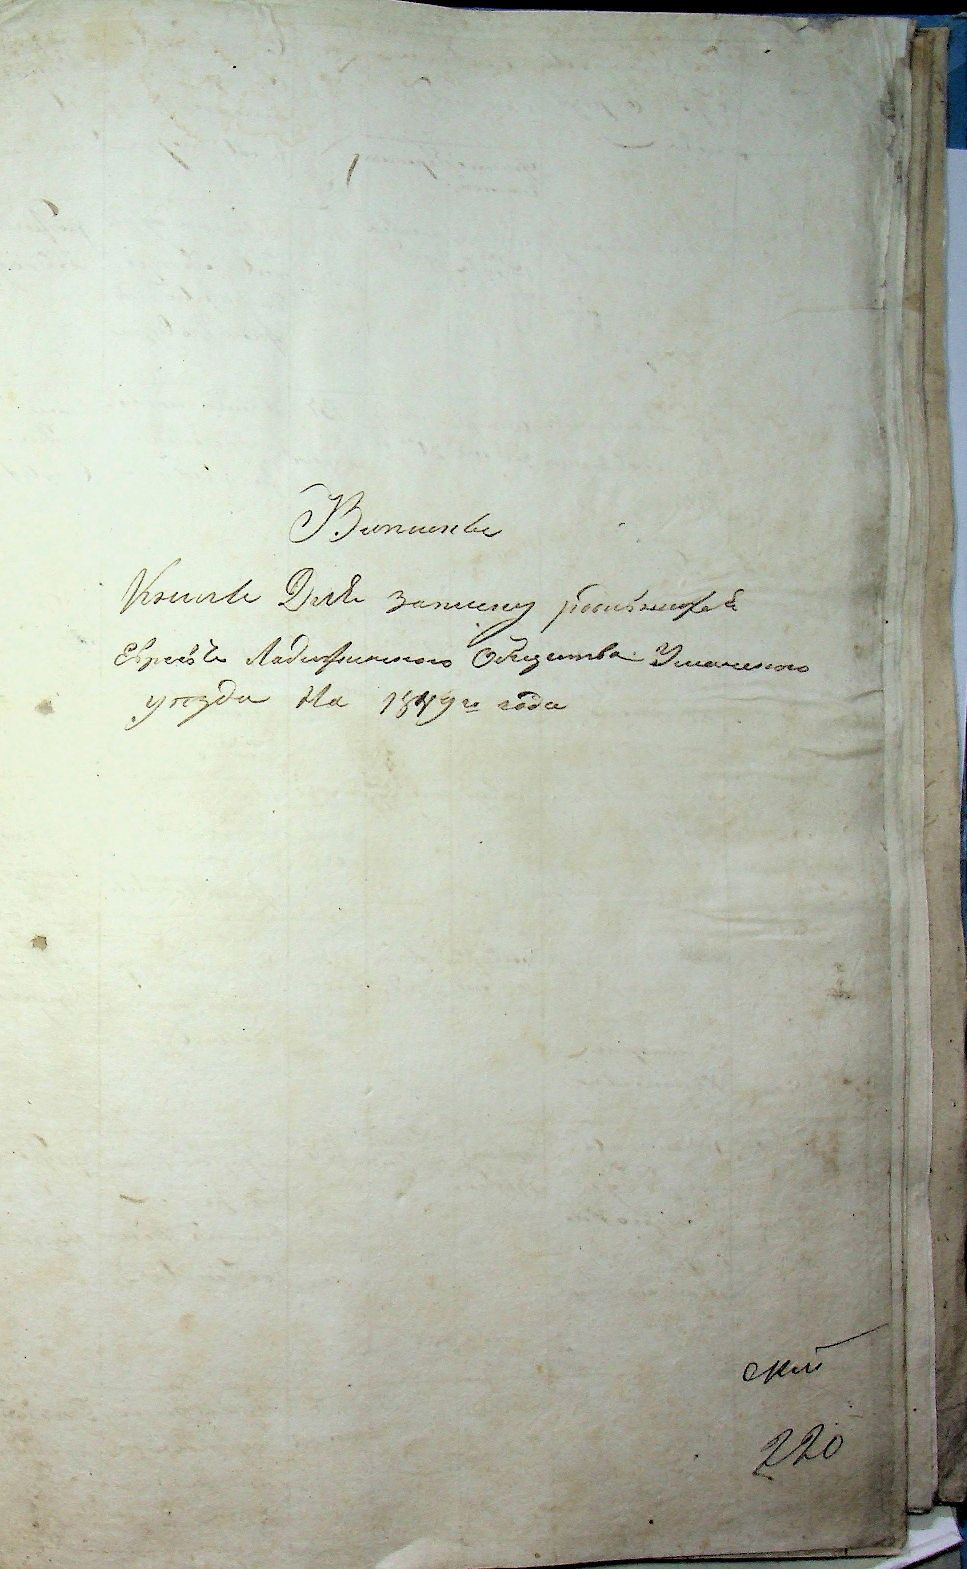 Выписка
Книга Для записку родившихся
Евреевъ Ладыжинского Общества Уманского
уезда На 1849го года
ский
220